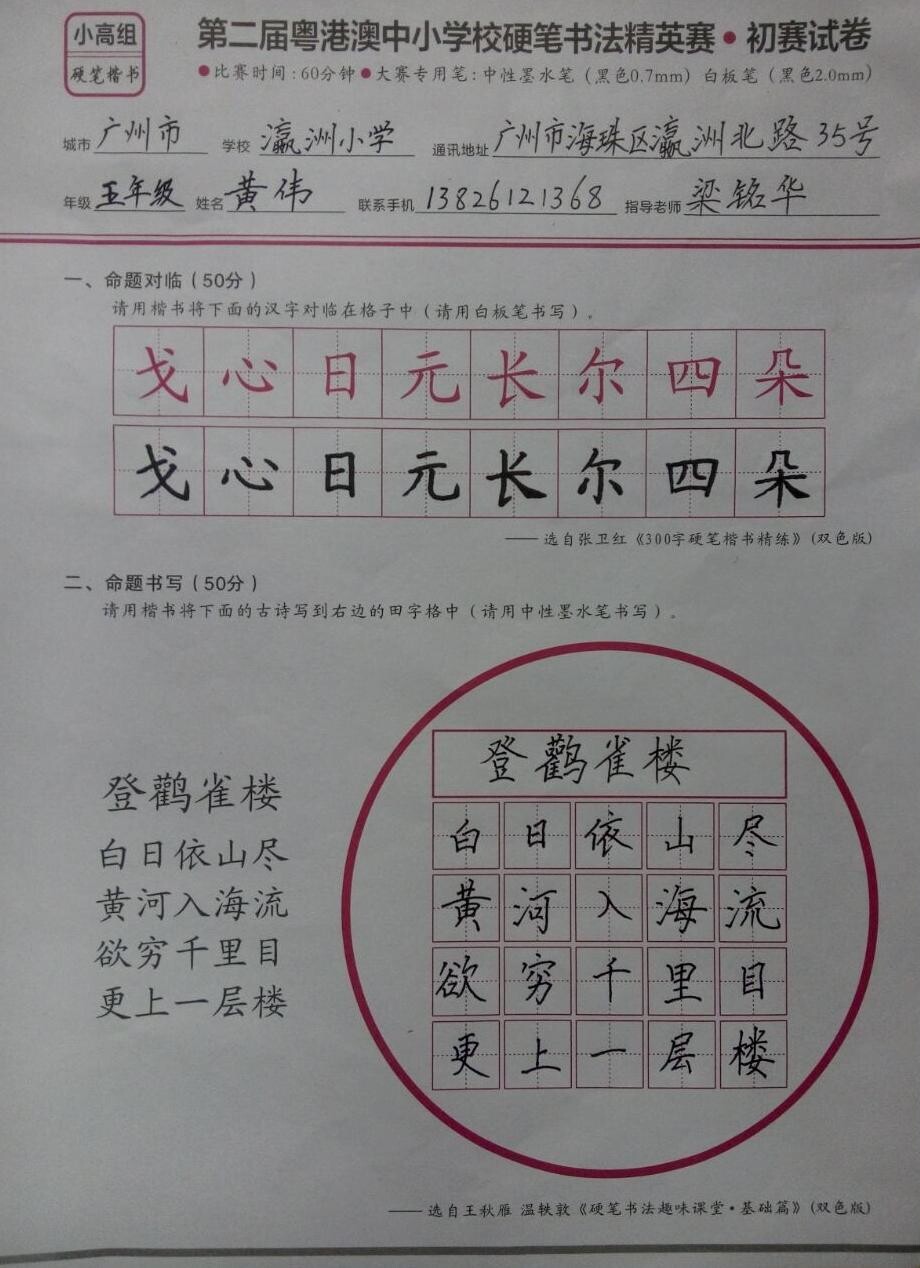 小高组
硬笔楷书
第二届粤港澳中小学校硬笔书法精英赛•初赛试卷
●比赛时间:60分钟●大赛专用笔:中性墨水笔（黑色0.7mm）白板笔（黑色2.0mm）
城市 广州市 学校 瀛洲小学 通讯地址 广州市海珠区瀛洲北路35号
年级 五年级 姓名 黄伟 联系手机 13826121368 指导老师 梁铭华
一、命题对临（50分）
请用楷书将下面的汉字对临在格子中（请用白板笔书写）。
戈心日元长尔四朵
戈心日元长尔四朵
—— 选自张卫红《300字硬笔楷书精练》(双色版)
二、命题书写（50分）
请用楷书将下面的古诗写到右边的田字格中（请用中性墨水笔书写）。
登鹳雀楼
白日依山尽
黄河入海流
欲穷千里目
更上一层楼
登鹳雀楼
白日依山尽
黄河入海流
欲穷千里目
更上一层楼
—— 选自王秋雁 温轶敦《硬笔书法趣味课堂·基础篇》(双色版)